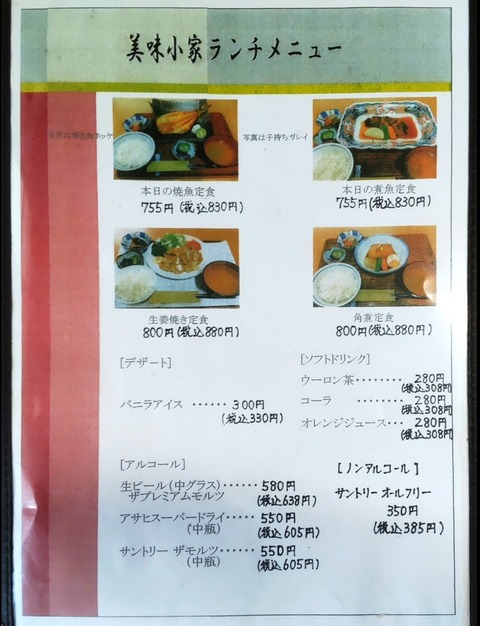 美味小家ランチメニュー
写真は子持ちガレイ
本日の焼魚定食
755円(税込830円)
本日の煮魚定食
755円(税込830円)
生姜焼き定食
800円(税込880円)
角煮定食
800円(税込880円)
[デザート]
バニラアイス ・・・・・・ 300円
(税込330円)
[ソフトドリンク]
ウーロン茶・・・・・・・・ 280円
(税込308円)
コーラ ・・・・・・・・ 280円
(税込308円)
オレンジジュース・・・ 280円
(税込308円)
[アルコール]
生ビール(中グラス)・・・・・・ 580円
ザプレミアムモルツ (税込638円)
アサヒスーパードライ・・・・・ 550円
(中瓶) (税込605円)
サントリー ザモルツ・・・・・ 550円
(中瓶) (税込605円)
[ノンアルコール]
サントリー オールフリー
350円
(税込385円)